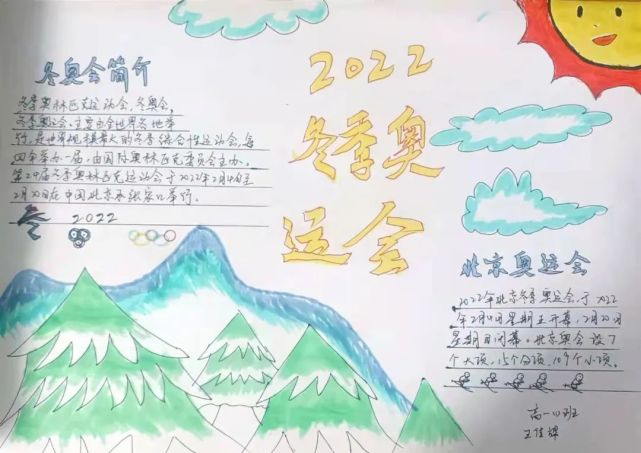 冬奥会简介
冬季奥林匹克运动会,冬奥会,
冬季奥运会,主要由全世界各地举
行,是世界规模最大的冬季综合性运动会,每
四年举办一届,由国际奥林匹克委员会主办。
第24届冬季奥林匹克运动会于2022年2月4日至
2月20日在中国北京和张家口举行。
2022
2022
冬季奥
运会
北京奥运会
2022年北京冬季奥运会,于2022
年2月4日星期五开幕,2月20日
星期日闭幕。北京奥会设7
个大项,15个分项,109个小项。
高一(1)班
王佳